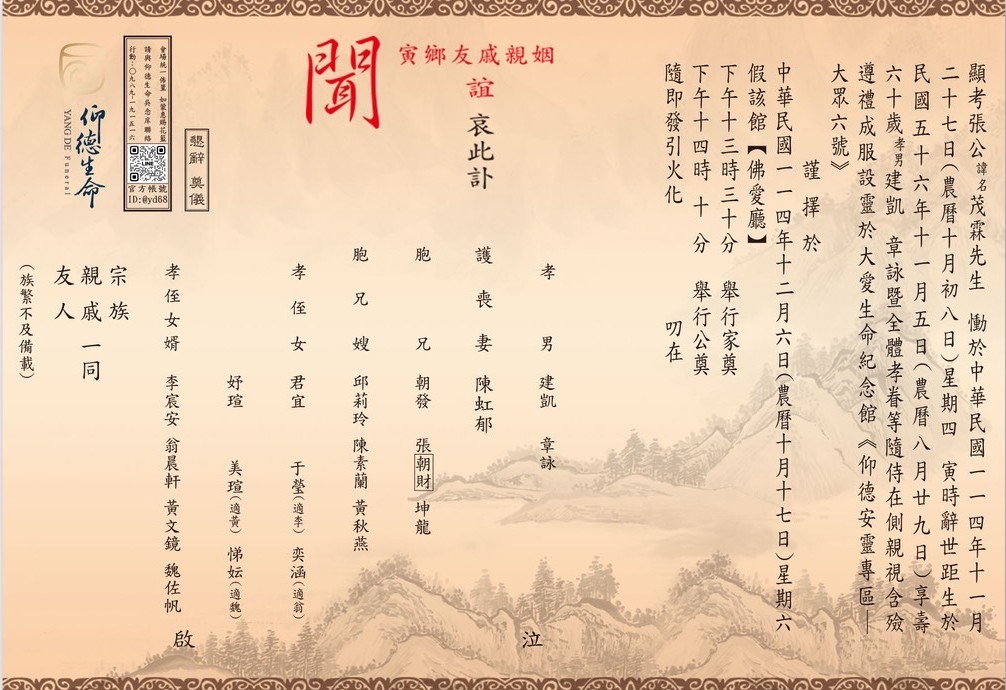 顯考張公諱名茂霖先生 慟於中華民國一一四年十一月
二十七日(農曆十月初八日)星期四 寅時辭世距生於
民國五十六年十一月五日(農曆八月廿九日)享壽
六十歲 孝男建凱 章詠暨全體孝眷等隨侍在側親視含殮
遵禮成服設靈於大愛生命紀念館《仰德安靈專區—
大眾六號》
謹擇於
中華民國一一四年十二月六日(農曆十月十七日)星期六
假該館【佛愛廳】
下午十三時三十分 舉行家奠
下午十四時 十 分 舉行公奠
隨即發引火化
叨在
姻親戚友鄉寅
誼 哀此訃
聞
孝 男 建凱 章詠
護喪妻 陳虹郁
胞 兄 朝發 張朝財 坤龍
胞兄嫂 邱莉玲 陳素蘭 黃秋燕
孝侄女 君宜 于瑩(適李) 奕涵(適翁)
妤瑄 美瑄(適黃) 悌妘(適魏)
孝侄女婿 李宸安 翁晨軒 黃文鏡 魏佐帆
泣
啟
宗族
親戚一同
友人
(族繁不及備載)
懇辭 奠儀
會場統一佈置 如蒙惠賜花籃
請與仰德生命吳念庠聯絡
行動:〇九八九-一九一五一六
LINE
官方帳號
ID:@yd68
仰德生命
YANG DE Funeral